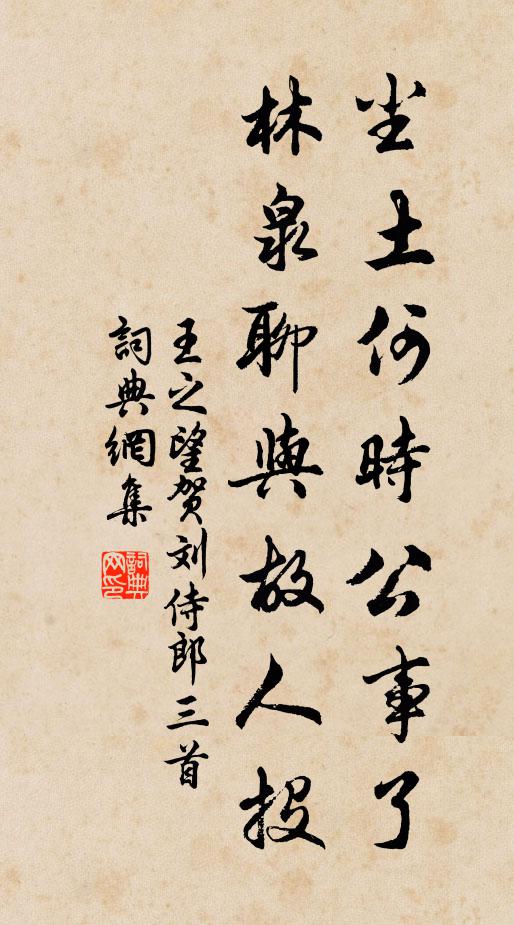 尘土何時公事了
林泉聊與故人投
王之望贺刘侍郎三首
詞典網集
詞典网印